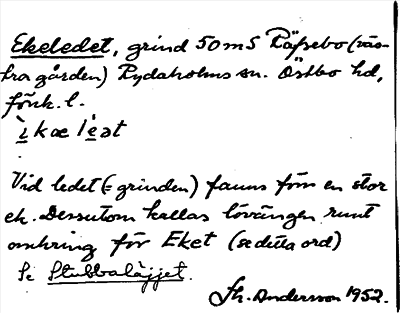 Ekeledet, grind 50 m S Räfsebo (väs-
tra gården) Rydaholms sn. Östbo hd,
Jönk. l.
ì kæ lèət
Vid ledet (= grinden) fanns förr en stor
ek. Dessutom kallas lövängen runt
omkring för Eket (se detta ord)
Se Stubbaläjjet.
Th. Andersson 1952.